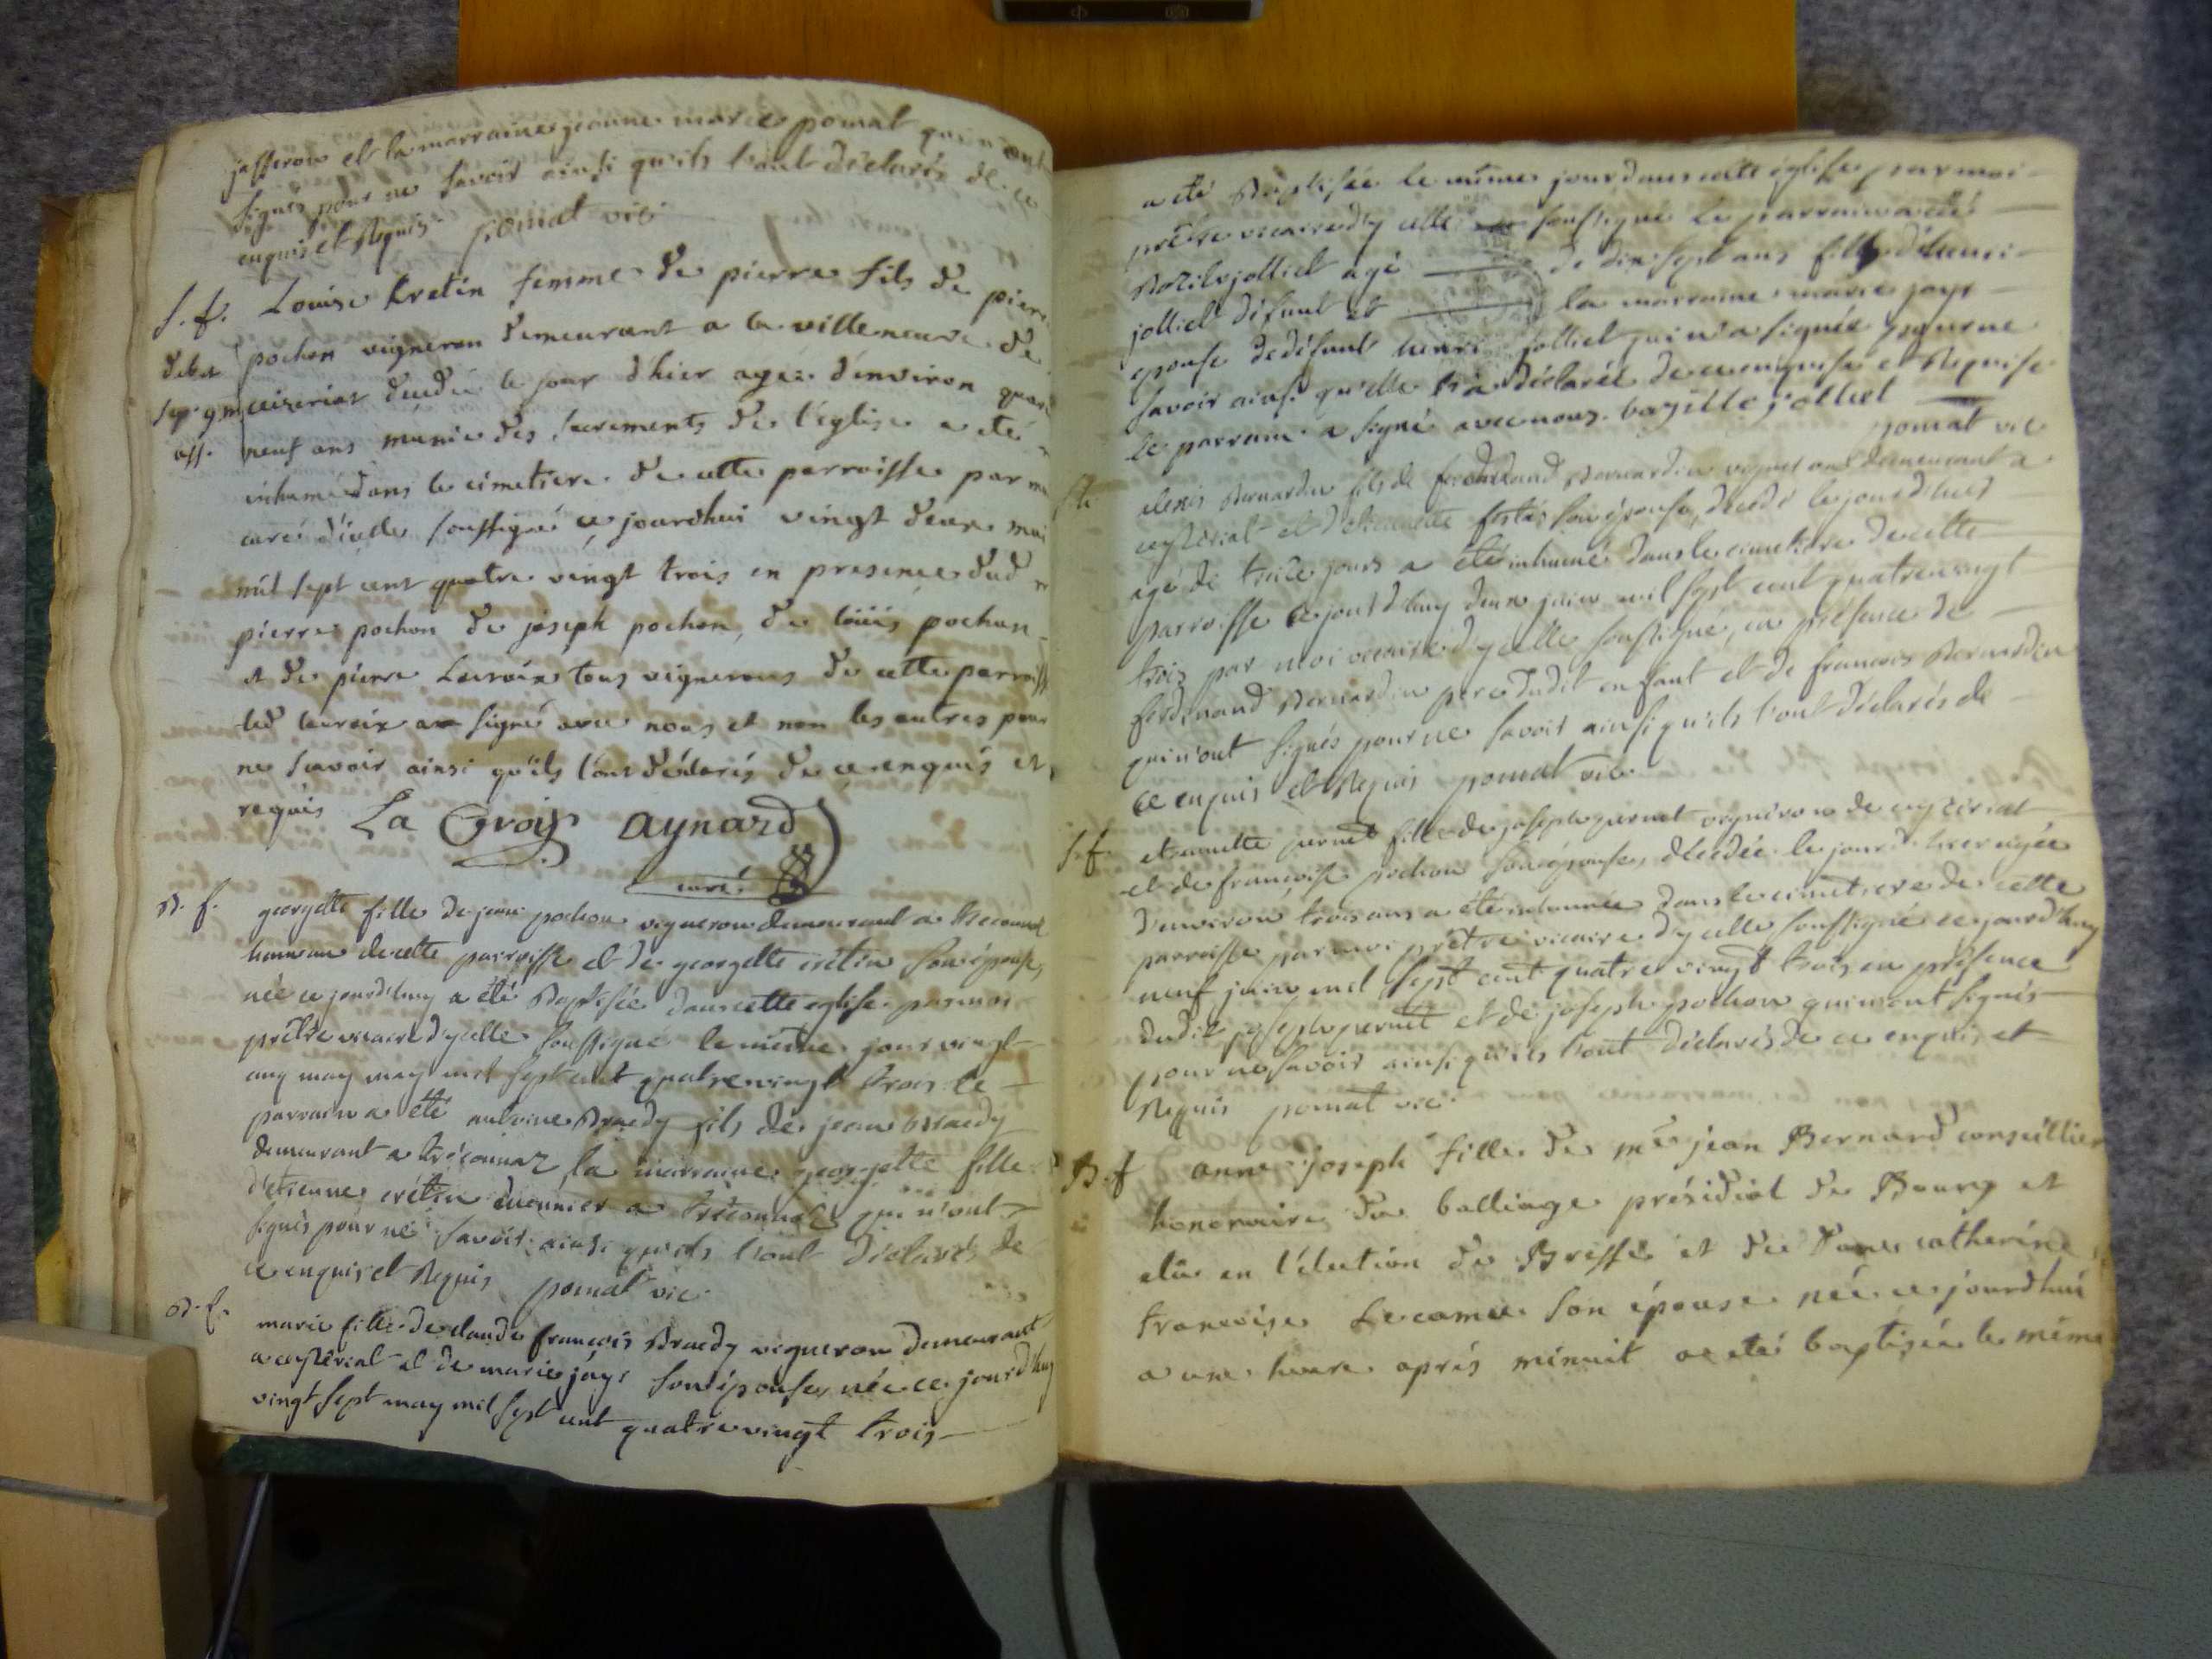 jafferou et la marraine jeanne marie pomat qui n'ont
signés pour ne savoir ainsi qu'ils l'ont déclarés de ce
enquis et Requis pomat vic
S. f. Louise kretin femme de pierre fils de pierre
pochon vigneron demeurant a la villeneuve de
ceizeriat decedée le jour d'hier agée d'environ quara
neuf ans munie des sacrements de l'église a eté
inhumé dans le cimetiere de cette parroisse par
curé d'icelle soussigné ce jourdhui vingt deux mai
mil sept cent quatre vingt trois en presence dud
pierre pochon de joseph pochon, de loüis pochon
et de pierre Lacroix tous vignerons de cette parroiss
led lacroix a signé avec nous et non les autres pour
ne scavoir ainsi qu'ils l'ont déclarés de ce enquis et
requis La Croix Aynard
curé
B. f. georgette fille de jean pochon vigneron demeurant a treconnas
hameau de cette parroisse et de georgette crétin son épouse,
née ce jourd'huy a été Baptisée dans cette eglise par moi
prêtre vicaire d'ycelle soussigné le même jour vingt
cinq may mil sept cent quatre vingt trois le
parrain a été antoine Braedy fils de jean braedy
demeurant a tréconnaz, la marraine georgette fille
d'etienne crétin meunier a tréconnas qui n'ont
signés pour ne savoir ainsi qu'ils l'ont déclarés de
ce enquis et Requis pomat vic
B. f. marie fille de claude francois Braedy vigneron demeurant
a ceyseriat et de marie jays son épouse, née ce jourd'huy
vingt sept may mil sept cent quatre vingt trois
a été Baptisée le même jour dans cette église par moi
prêtre vicaire d'ycelle soussigné le parrain a été
Bazile jolliet agé de dix sept ans fils d'henri
jolliet défunt et la marraine marie jays
epouse de défunt henri jolliet qui n'a signée pour ne
savoir ainsi qu'elle l'a déclarée de ce enquise et Requise
le parrain a signé avec nous. bazille jolliet
pomat vic
alexis Bernardin fils de ferdinand Bernardin vigneron demeurant a
ceyseriat et d'etiennette son épouse, decedé le jour d'hier
agé de treize jours a été inhumé dans le cimetiere de cette
parroisse ce jourd'huy deux juin mil sept cent quatre vingt
trois par moi vicaire d'ycelle soussigné, en présence de
ferdinand Bernardin pere dudit enfant et de francois Bernardin
qui n'ont signés pour ne savoir ainsi qu'ils l'ont déclarés de
ce enquis et Requis pomat vic
S. f. etiennette pernet fille de joseph pernet vigneron de ceyzeriat
et de françoise pochon son épouse, décédée le jour d'hier agée
d'environ trois ans a été inhumée dans le cimetiere de cette
parroisse par moi prêtre vicaire d'ycelle soussigné ce jourd'huy
neuf juin mil sept cent quatre vingt trois en présence
dudit joseph pernet et de joseph pochon qui n'ont signés
pour ne savoir ainsi qu'ils l'ont déclarés de ce enquis et
Requis pomat vic
B. f anne joseph fille de me jean Bernard conseillier
honoraire du balliage présidial de Bourg et
elû en l'élection de Bresse et de dame catherine
françoise son épouse née ce jourdhui
a une heure après minuit a eté baptisée le même